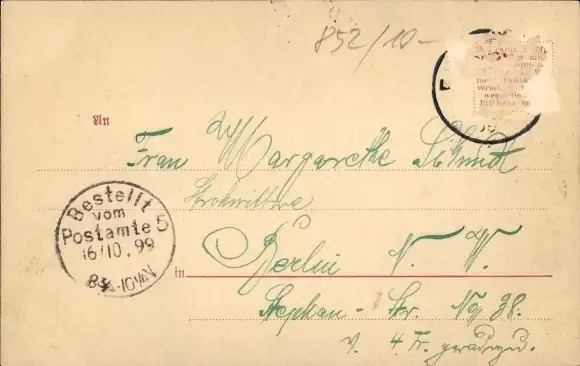 852/10-
An
Frau Margarethe Schmidt
Strohwittwe
in Berlin N. W.
Stephan-Str. No 38.
v. 4 Tr. geradezu.
Bestellt
vom
Postamte 5
16/10.99
8¾-10V